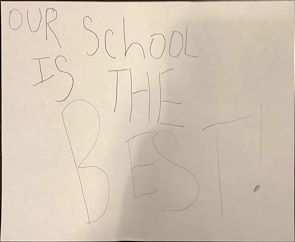 OUR SchOOL
IS THE
BEST!